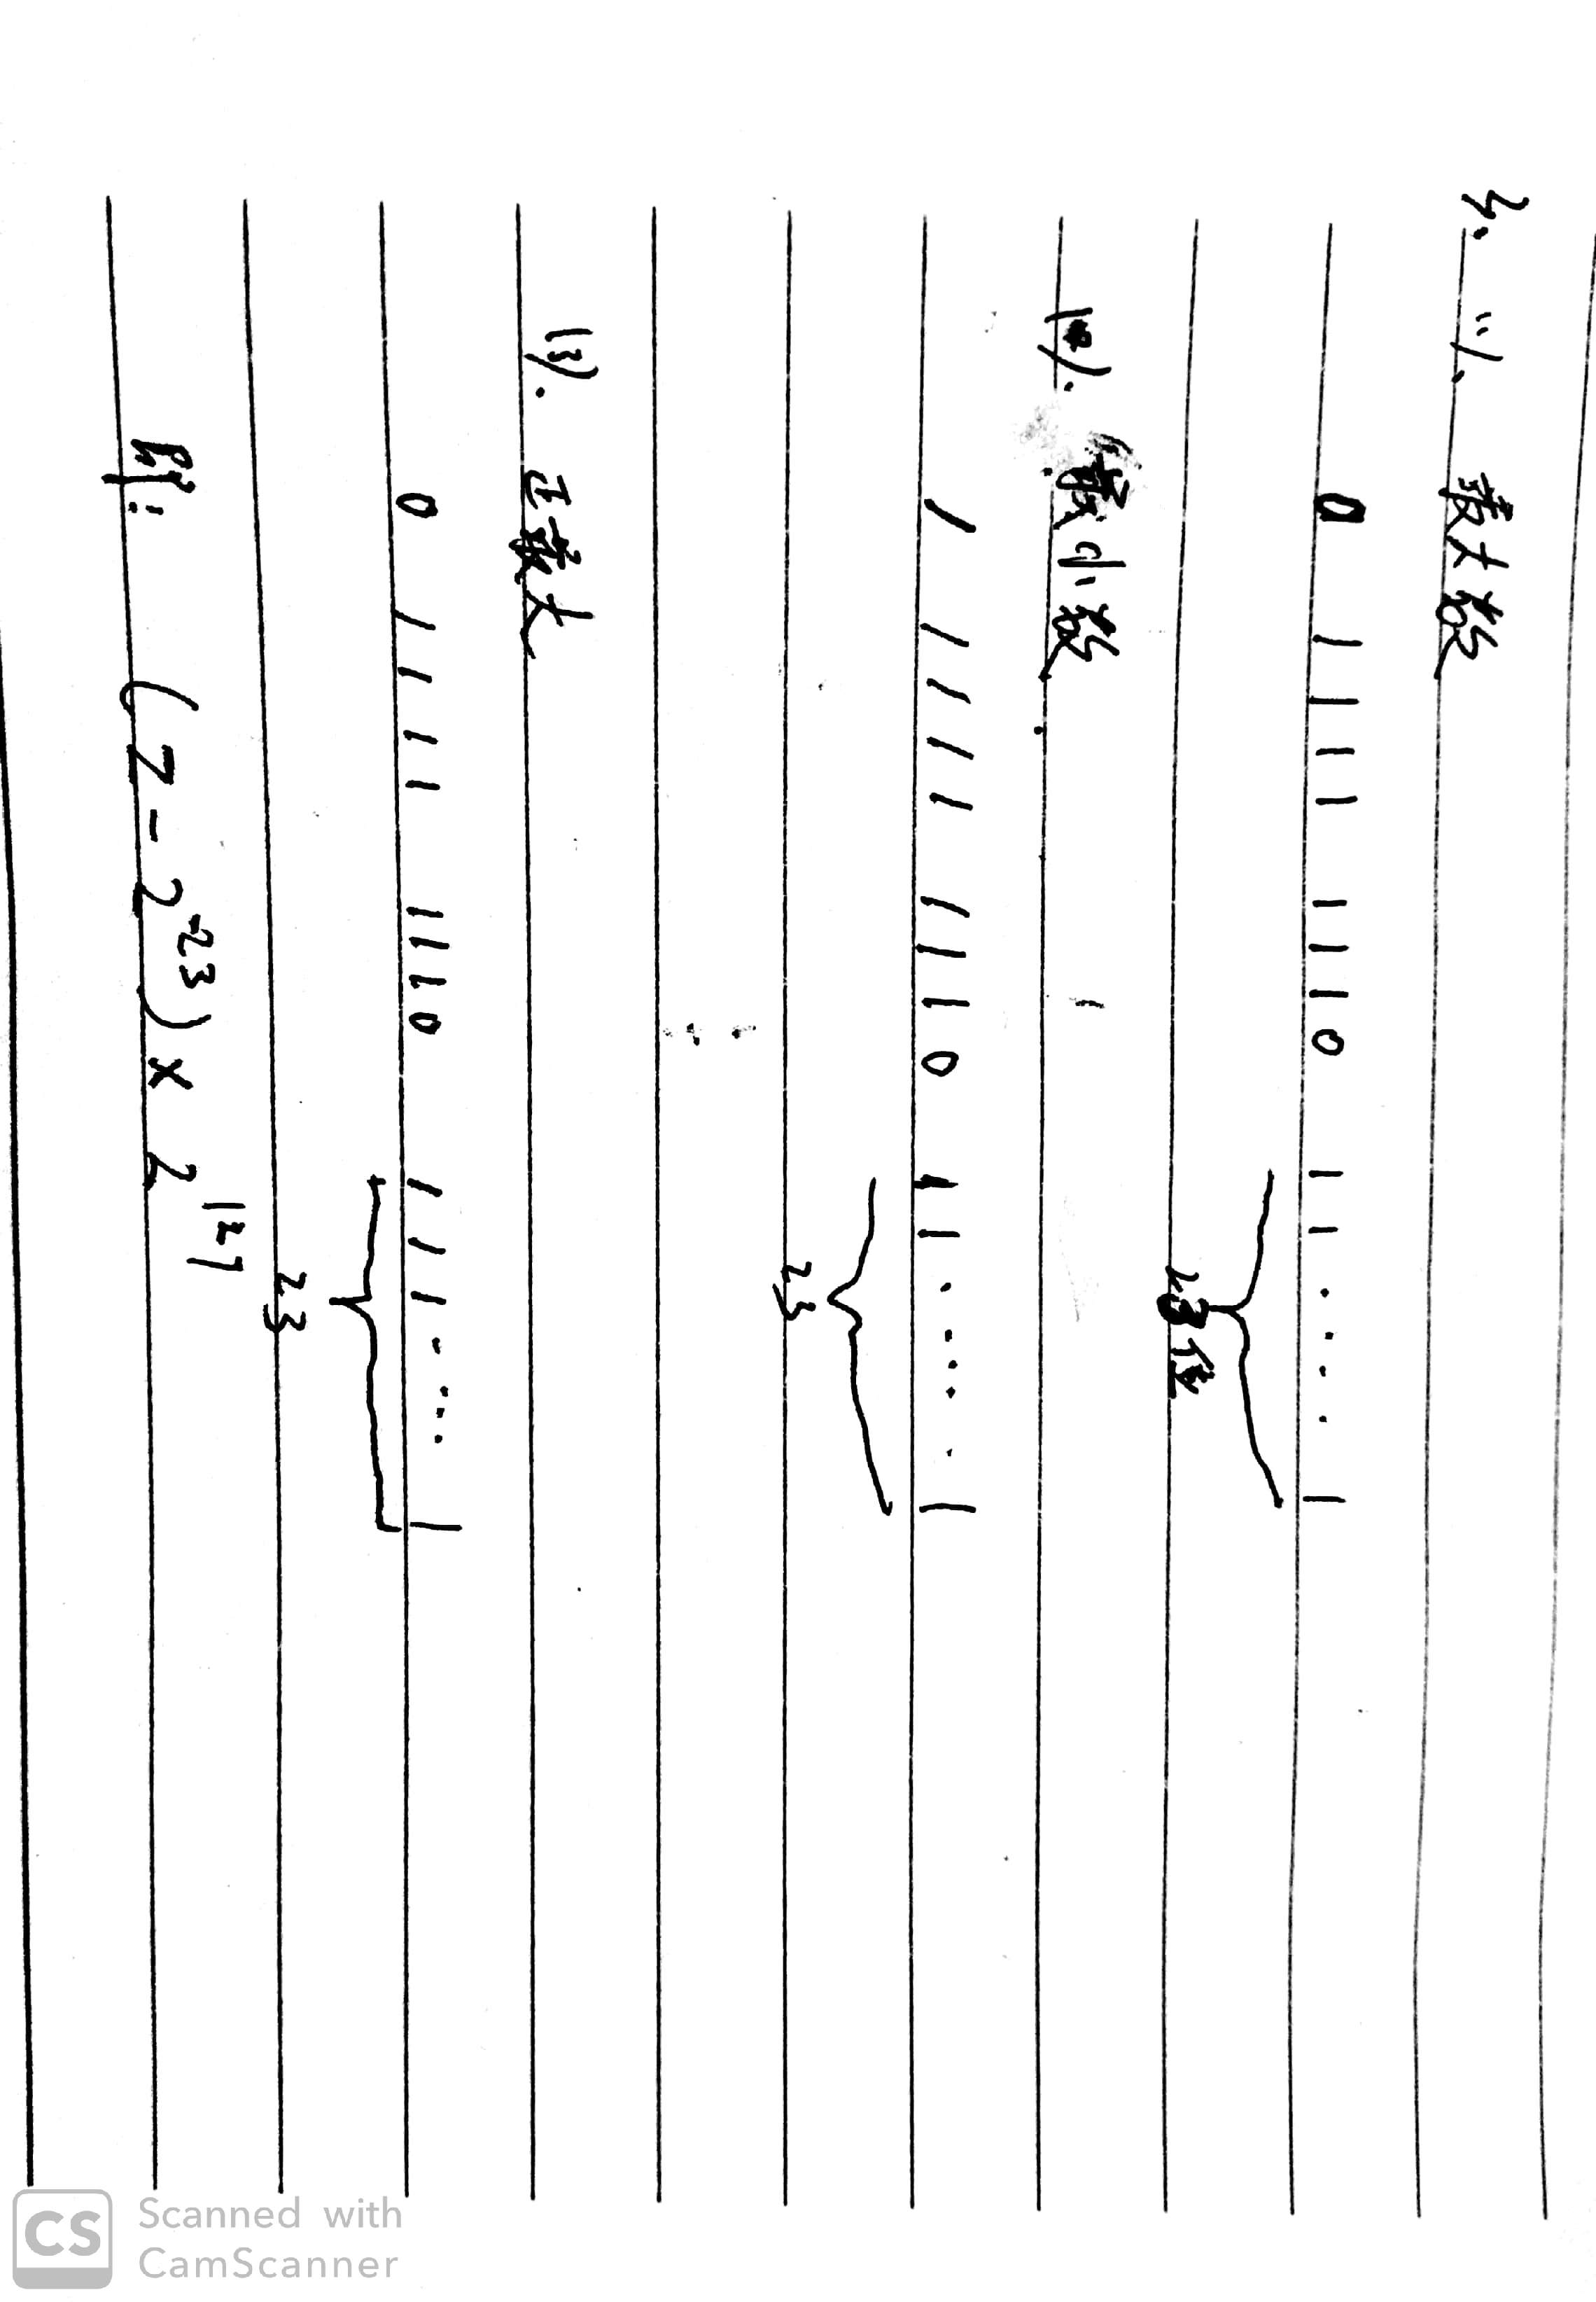 4. (1). 最大数
0 1111 1110 11....1
23位
(2). 最小数
1 1111 1110 11.....1
23
(3). 正最大
0 1111 1110 111.....1
23
即: (2-2^-23) x 2^127
Scanned with
CamScanner